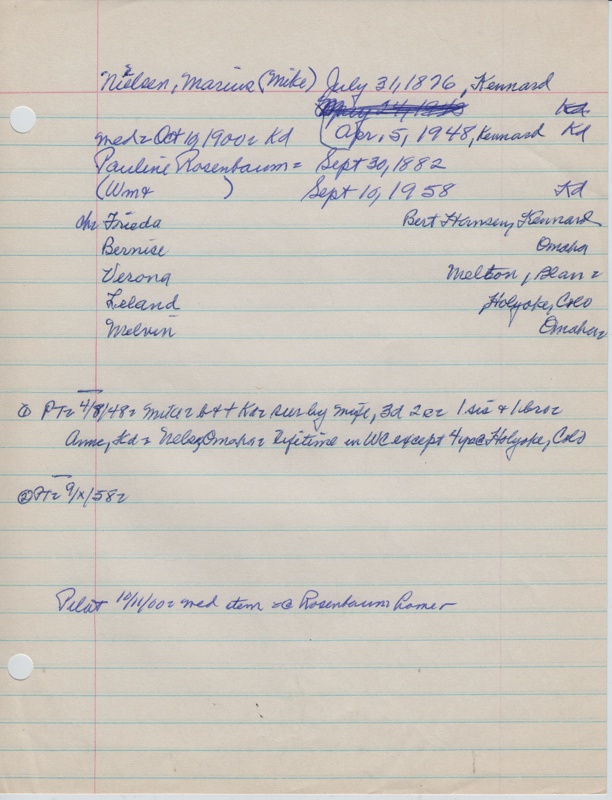 Nielsen, Marius (Mike) July 31, 1876, Kennard
Kd
med = Oct 10, 1900 = Kd (Apr. 5, 1948, Kennard Kd
Pauline Rosenbaum = Sept 30, 1882
(Wm & ) Sept 10, 1958 Kd
ch: Frieda Bert Hansen, Kennard
Bernise Omaha
Verona Melton, Blan =
Leland Holyoke, Colo
Melvin Omaha =
① PT = 4/8/48 = Mike = b & + Kd = sur by wife, 3d 2s = 1 sis & 1 bro =
Anne, Kd = Nels, Omaha = lifetime in WC except 4 y @ Holyoke, Colo
② PT = 9/x/58 =
Pilot 10/11/00 = med item = @ Rosenbaum home -